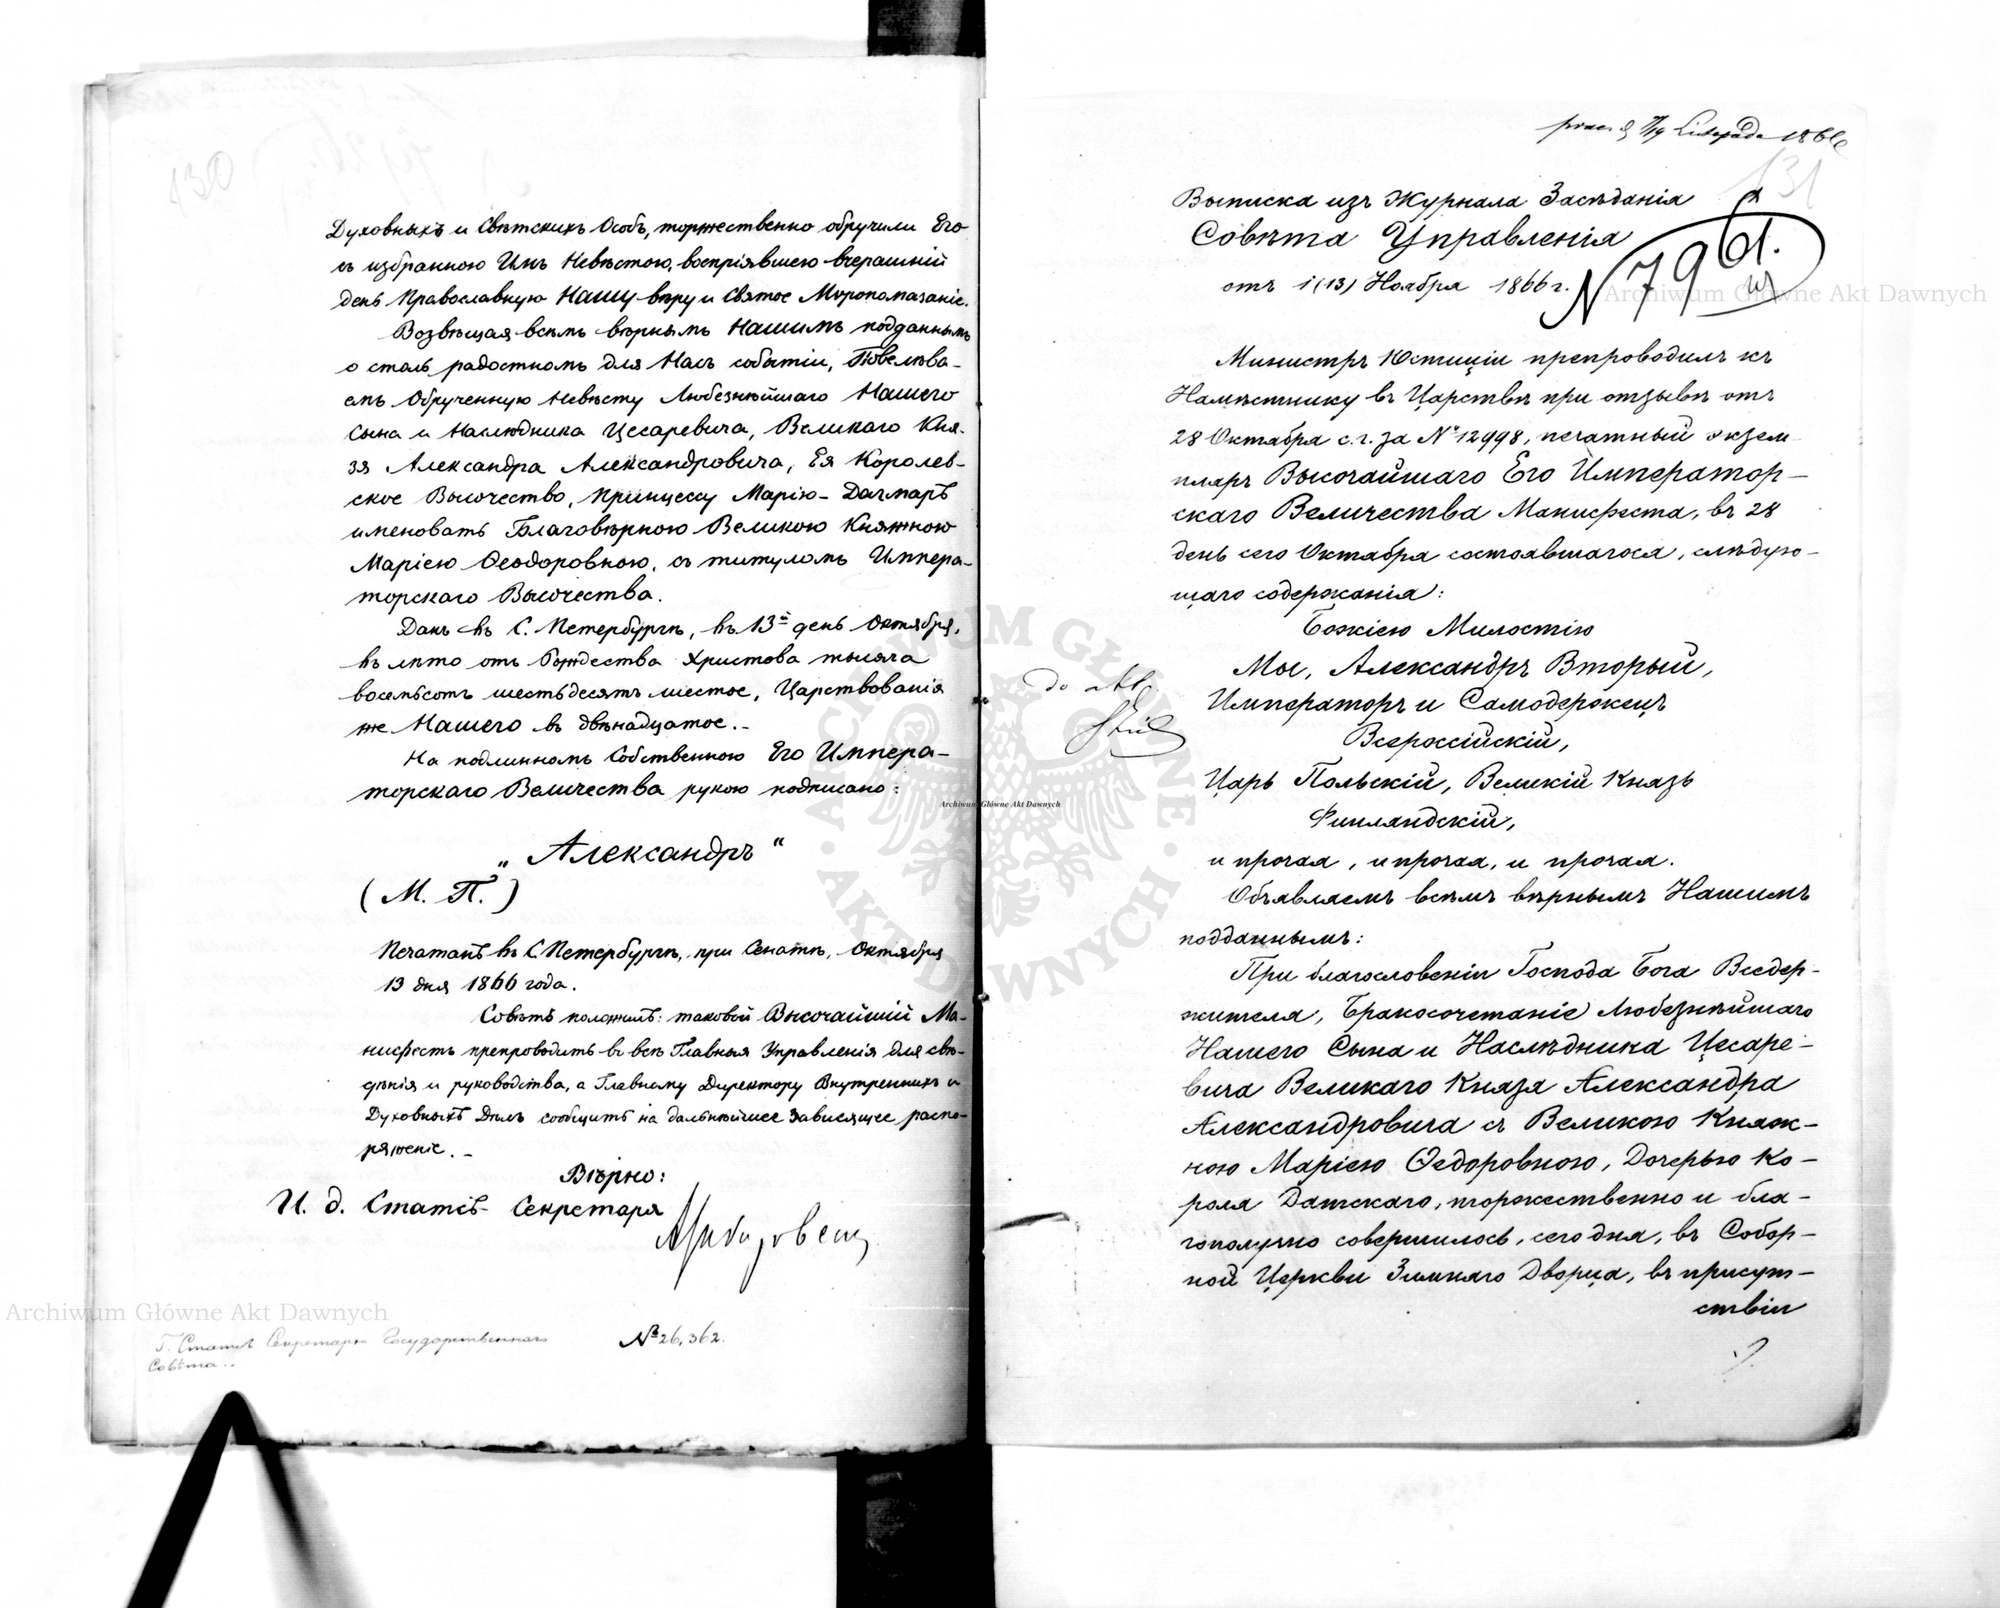 130
Духовныхъ и Свѣтскихъ Особъ, торжественно обручили Его
съ избранною Имъ Невѣстою, воспріявшею вчерашній
день Православную Нашу вѣру и Святое Мѵропомазаніе.
Возвѣщая всѣмъ вѣрнымъ Нашимъ подданнымъ
о столь радостномъ для Насъ событіи, Повелѣва-
емъ Обрученную Невѣсту Любезнѣйшаго Нашего
Сына и Наслѣдника Цесаревича, Великаго Кня-
зя Александра Александровича, Ея Королев-
ское Высочество, Принцессу Марію-Дагмаръ
именовать Благовѣрною Великою Княжною
Маріею Ѳеодоровною, съ титуломъ Импера-
торскаго Высочества.
Данъ въ С. Петербургѣ, въ 13й день Октября,
въ лѣто отъ Рождества Христова тысяча
восемьсотъ шестьдесятъ шестое, Царствованія
же Нашего въ двѣнадцатое.-
На подлинномъ Собственною Его Импера-
торскаго Величества рукою подписано:
„Александръ“
(М. П.)
Печатанъ въ С. Петербургѣ, при Сенатѣ, Октября
13 дня 1866 года.
Совѣтъ положилъ: таковой Высочайшій Ма-
нифестъ препроводить во всѣ Главныя Управленія для свѣ-
дѣнія и руководства, а Главному Директору Внутреннихъ и
Духовныхъ Дѣлъ сообщить на дальнѣйшее зависящее распо-
ряженіе.-
Вѣрно:
И. д. Статсъ-Секретаря
№ 26,362.
Г. Статсъ Секретарю Государственнаго
Совѣта..
Archiwum Główne Akt Dawnych
7/19 Listopada 1866
131
Выписка изъ Журнала Засѣданія
Совѣта Управленія
отъ 1 (13) Ноября 1866 г.
N 796
Archiwum Główne Akt Dawnych
Министръ Юстиціи препроводилъ къ
Намѣстнику въ Царствѣ при отзывѣ отъ
28 Октября с. г. за № 12998, печатный экзем
пляръ Высочайшаго Его Император-
скаго Величества Манифеста, въ 28
день сего Октября состоявшагося, слѣдую-
щаго содержанія:
Божіею Милостію
Мы, Александръ Вторый,
Императоръ и Самодержецъ
Всероссійскій,
Царь Польскій, Великій Князь
Финляндскій,
и прочая, и прочая, и прочая.
Объявляемъ всѣмъ вѣрнымъ Нашимъ
подданнымъ:
При благословеніи Господа Бога Вседер-
жителя, Бракосочетаніе Любезнѣйшаго
Нашего Сына и Наслѣдника Цесаре-
вича Великаго Князя Александра
Александровича съ Великою Княж-
ною Маріею Ѳедоровною, Дочерью Ко-
роля Датскаго, торжественно и бла-
гополучно совершилось, сего дня, въ Собор-
ной Церкви Зимняго Дворца, въ присут-
ствіи
do akt
Archiwum Główne Akt Dawnych
ARCHIWUM GŁÓWNE AKT DAWNYCH